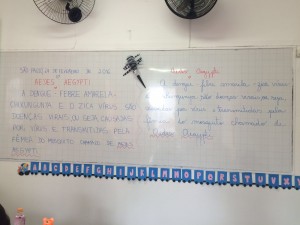 SÃO PAULO, DE DE 2016
AEDES AEGYPTI
A DENGUE, FEBRE AMARELA,
CHIKUNGUNYA E O ZICA VÍRUS SÃO
DOENÇAS VIRAIS, OU SEJA, CAUSADAS
POR VÍRUS E TRANSMITIDAS PELA
FÊMEA DO MOSQUITO CHAMADO DE AEDES
AEGYPTI
Aedes Aegypti
A dengue, febre amarela,
são doenças virais, ou seja,
por vírus e transmitidas pela
fêmea do mosquito chamado de
Aedes Aegypti
A B C D E F G H I J K L M N O P Q R S T U V